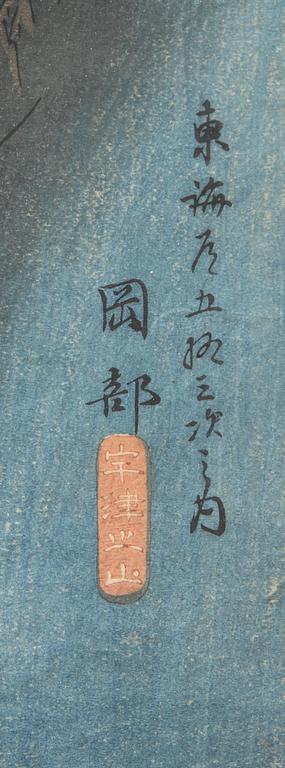 東海道五拾三次之内
岡部
宇津之山